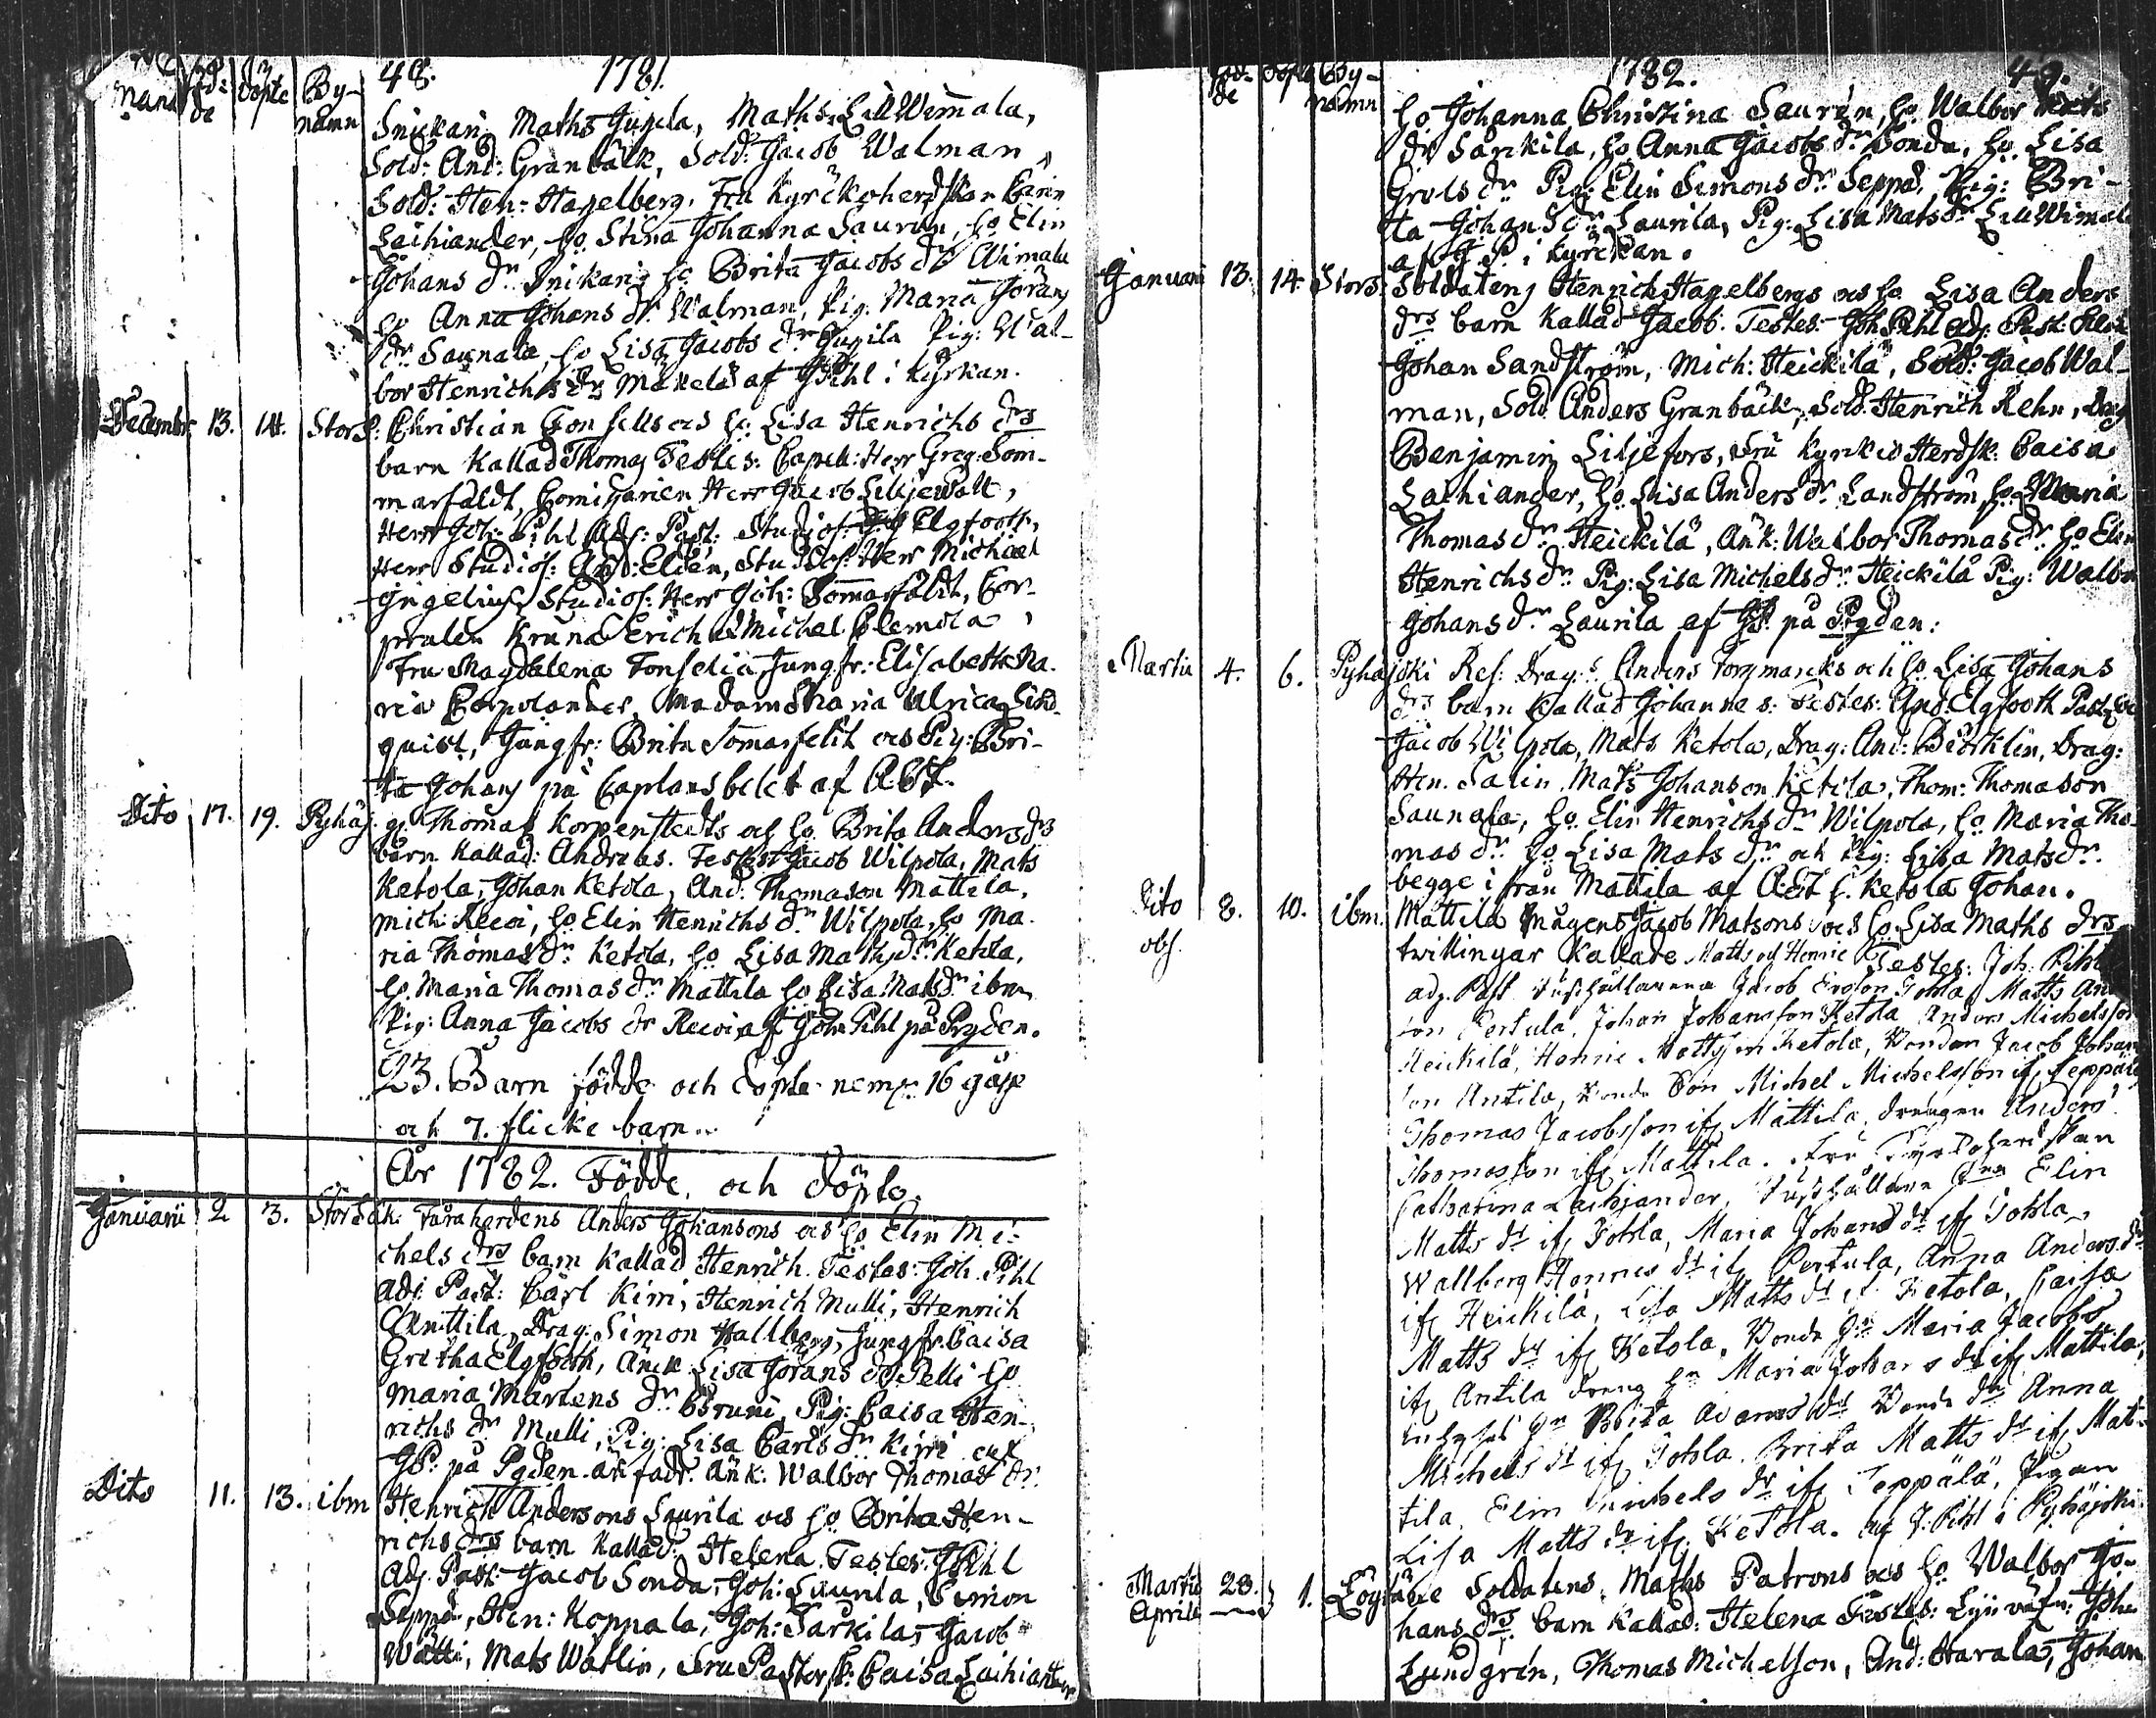 48. 1781.
Månad föd: de döpte By- namn
Snickari Maths Gugila, Maths LillWimmala,
Sold: And: Granbäck, Sold: Jacob Walman,
Sold: Hen: Hagelberg, Fru Kyrckoherdskan Carin
Laihiander, ho. Stina Johanna Sauren, ho. Elin
Johans dr. Snikari, ho. Brita Jacobs dr Wimala
ho. Anna Johans dr. Walman, Pig. Maria Görans
dr. Saunala, ho Lisa Jacobs dr Gugila Pig: Wal-
bor Henrichs dr Mäkelä af J Pihl i kyrkan.
December 13. 14. Stors: Christian Fonsells och ho: Lisa Henrichs drs
barn kallad Thomas Testes: Capell: Herr Greg: Som-
marfäldt, Comissarien Herr Jacob Liljewalt,
Herr Joh: Pihl Adj: Past: Studios: Elgfooth,
Herr Studios: And: Eldén, Studios: Herr Michael
Ingelius, Studios: Herr Joh: Sommarfäldt, Cor-
pralen Kruna Erich Michel Clemola,
Fru Magdalena Fonselia, Jungfr: Elisabeth Ma-
ria Corpolander, Madam Maria Ulrica Lind-
quist, Jungfr: Brita Sommarfelt och Pig: Bri-
ta Johans på Caplansbolet af
Dito 17. 19. Pyhäj: Thomas Korpenstedts och ho. Brita Anders drs
barn kallad: Andreas. Testes Jacob Wilpola, Mats
Ketola, Johan Ketola, And: Thomason Mattila,
Mich: Recoi, ho. Elin Henrichs dr. Wilpola, ho Ma-
ria Thomas dr. Ketola, ho Lisa Maths dr. Ketola,
ho. Maria Thomas dr Mattila ho Lisa Mats dr ibm
Pig: Anna Jacobs dr Recoi af Joh: Pihl på Pryden.
23. Barn födde och döpte nemt 16 gåsse
och 7. flicke barn.
År 1782. Födde och döpte.
Januarii 2 3. Storsåk: Fåraherdens Anders Johansons och ho Elin Mi-
chels drs barn kallad Henrich. Testes: Joh. Pihl
adj: Past: Carl Kirri, Henrich Mulli, Henrich
Anttila, Drag: Simon Hallberg, Jungfr. Caisa
Gretha Elgfooth, Änck. Lisa Görans dr Pelli ho
Maria Mårtens dr. Bruni, Pig: Caisa Hen-
richs dr Mulli, Pig: Lisa Carls dr Kirri af
JP: på Pgden. Änk: Walbor Thomas dr.
Dito 11. 13. ibm Henrich Andersons Laurila och ho Brita Hen-
richs drs barn kallad: Helena. Testes: J Pihl
Adj. Past: Jacob Sonda, Joh: Laurila, Simon
Seppä, Hen: Koppala, Joh: Särkila, Jacob
Watti, Mats Watlin, Fru Pastorsk: Caisa Laihiander
föd- de döpte By- namn 1782. 49.
ho Johanna Christina Saurén, ho. Walbor Mats
dr Särkila, ho Anna Jacobs dr Sonda, ho Lisa
Grels dr Pig: Elin Simons dr Seppä, Pig: Bri-
ta Johans dr. Laurila, Pig: Lisa Mats dr LillWimala
af J P. i kyrckan.
Januarii 13. 14. Stors: Soldatens Henrich Hagelbergs och ho Lisa Anders
drs barn kallad Jacob. Testes: Joh Pihl adj: Past:
Johan Sandström, Mich: Heickilä, Sold: Jacob Wal-
man, Sold: Anders Granbäck, Sold: Henrich Rehn, Drag
Benjamin Liljefors, Fru Kyrkio Herdsk: Caisa
Laihiander, ho. Lisa Anders dr Sandström, ho. Maria
Thomas dr. Heickilä, Änk: Walbor Thomas dr. ho Elin
Henrichs dr. Pig: Lisa Michels dr. Heickilä Pig: Walbor
Johans dr. Laurila af JP. på Pgden:
Martii 4. 6. Pyhäjoki Res: Drag: Anders Forsmarcks och ho. Lisa Johans
drs barn kallad Johannes. Testes: And: Elgfooth Past:
Jacob Wilpola, Mats Ketola, Drag: And: Biörklin, Drag:
Hen. Salin. Mats Johanson Ketola, Thom: Thomason
Saunala, ho. Elin Henrichs dr Wilpola, ho Maria Tho-
mas dr ho Lisa Mats dr och Pig: Lisa Mats dr.
begge ifrån Mattila af Ketola Johan.
Dito 8. 10. ibm. Mattila Jacob Matsons och ho. Lisa Maths drs
obs. twillingar kallade Matts och Henric Testes: Joh. Pihl
adj. Past Jacob Tohla, Matts
son Pertula, Johan Johansson Ketola Anders Michelsson
Heickilä, Henric Mattsson Ketola, Bonden Jacob Johan
son Antila, Bonde Son Michel Michelsson if. Teppälä
Thomas Jacobsson if. Mattila, drengen Anders
Thomasson if. Mattila. Fru Kyrckoherdskan
Catharina Laihjander,
Matts dr if. Tohla, Maria Johans dr if. Tohla,
Wallborg Henrics dr if. Pertula, Anna Anders dr
if. Heickilä, Lisa Matts dr if. Ketola, Caisa
Matts dr if. Ketola. Bonde Maria Jacobs
if. Antila dreng Maria Johans dr if. Mattila,
Brita Bonde dr Anna
Michels dr if. Tohla. Brita Matts dr if. Mat-
tila, Elin Michels dr if. Teppälä, Pigan
Lisa Matts dr if. Ketola. af J. Pihl i Pyhäjoki
Martii 28. Aprilis 1. Soldatens Maths Patrons och ho Walbor Jo-
hans drs. barn kallad: Helena Testes: Johan
Lundgrén, Thomas Michelson, And: Harala, Johan